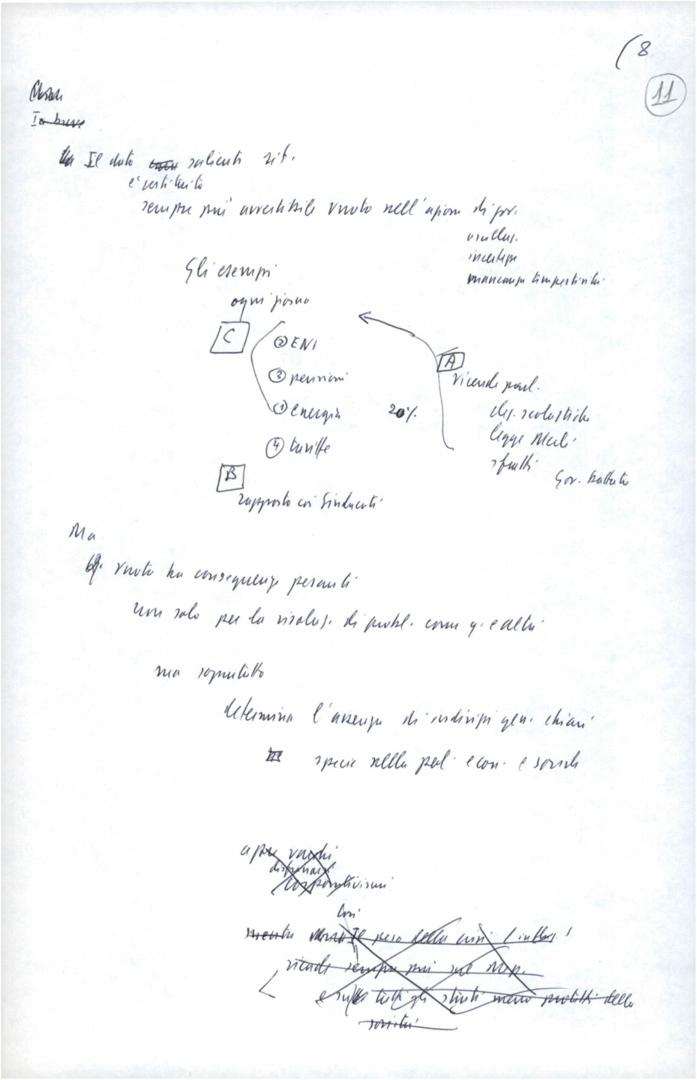 (8
11
In breve
Il dato salienti sit.
è costituito
sempre più avvertibile vuoto nell'azione di gov.
oscillaz.
incertezze
mancanza tempestività
Gli esempi
ogni giorno
C
② ENI
A
③ pensioni
vicende parl.
① energia 20%
dis. scolastiche
legge Merli
④ tariffe
sfratti
Gov. battuto
B
rapporto coi Sindacati
Ma
q. vuoto ha conseguenze pesanti
non solo per la risoluz. di probl. come q. e altri
ma soprattutto
determina l'assenza di indirizzi gen. chiari
specie nella pol. econ. e sociale
apre varchi
corporativismi
così
Il peso della crisi l'inflaz.
ricade sempre più sul Mezz.
e su tutti gli strati meno protetti della
società